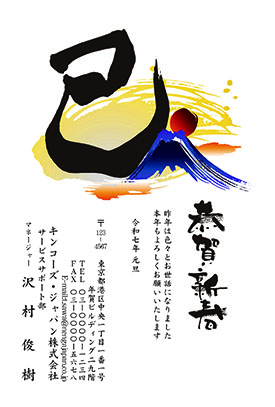 巳
恭賀新春
昨年は色々とお世話になりました
本年もよろしくお願いいたします
令和七年 元旦
〒123-4567
東京都港区中央一丁目一番一号
年賀ビルディング二九階
TEL 〇三-〇〇〇〇-一二三四
FAX 〇三-〇〇〇〇-五六七八
キンコーズ・ジャパン株式会社
サービスサポート部
マネージャー 沢村 俊樹